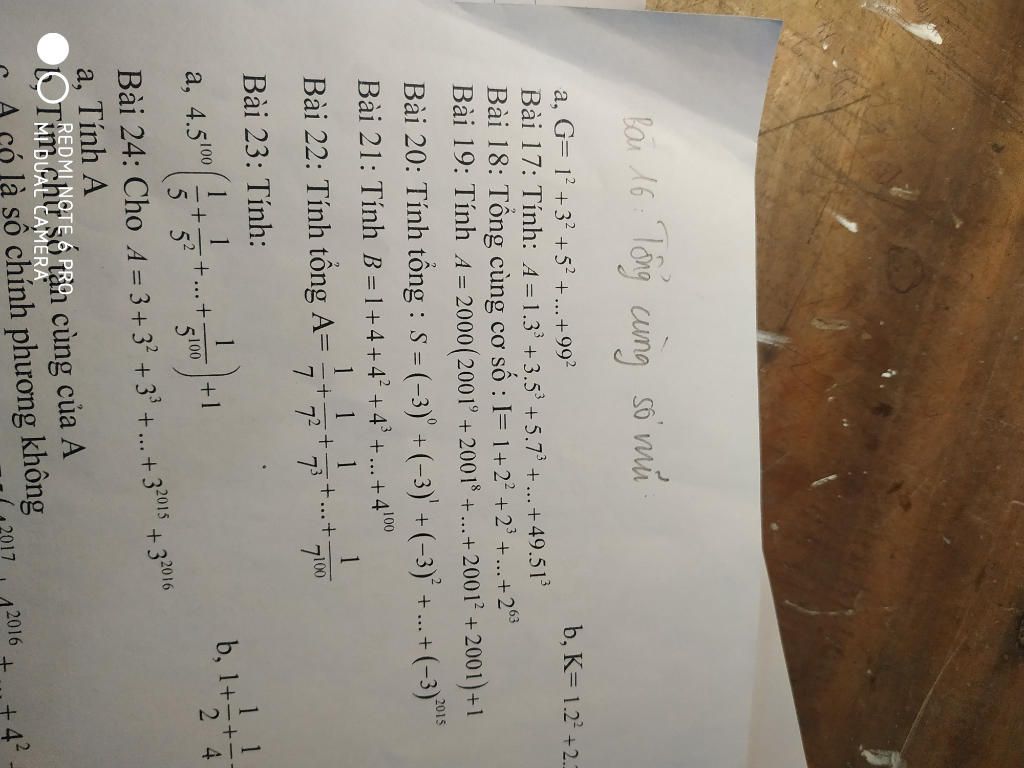 Bài 16: Tổng cùng số mũ:
a, G= 1² + 3² + 5² + ... + 99² b, K = 1.2² + 2.
Bài 17: Tính: A = 1.3³ + 3.5³ + 5.7³ + ... + 49.51³
Bài 18: Tổng cùng cơ số : I = 1 + 2² + 2³ + ... + 2⁶³
Bài 19: Tính A = 2000(2001⁹ + 2001⁸ + ... + 2001² + 2001) + 1
Bài 20: Tính tổng : S = (−3)⁰ + (−3)¹ + (−3)² + ... + (−3)²⁰¹⁵
Bài 21: Tính B = 1 + 4 + 4² + 4³ + ... + 4¹⁰⁰
Bài 22: Tính tổng A= 1/7 + 1/7² + 1/7³ + ... + 1/7¹⁰⁰
Bài 23: Tính:
a, 4.5¹⁰⁰ (1/5 + 1/5² + ... + 1/5¹⁰⁰) + 1 b, 1 + 1/2 + 1/4
Bài 24: Cho A = 3 + 3² + 3³ + ... + 3²⁰¹⁵ + 3²⁰¹⁶
a, Tính A
b, Tìm chữ số tận cùng của A
A có là số chính phương không
4²⁰¹⁷ + 4²⁰¹⁶ + ... + 4²
REDMI NOTE 6 PRO
MI DUAL CAMERA